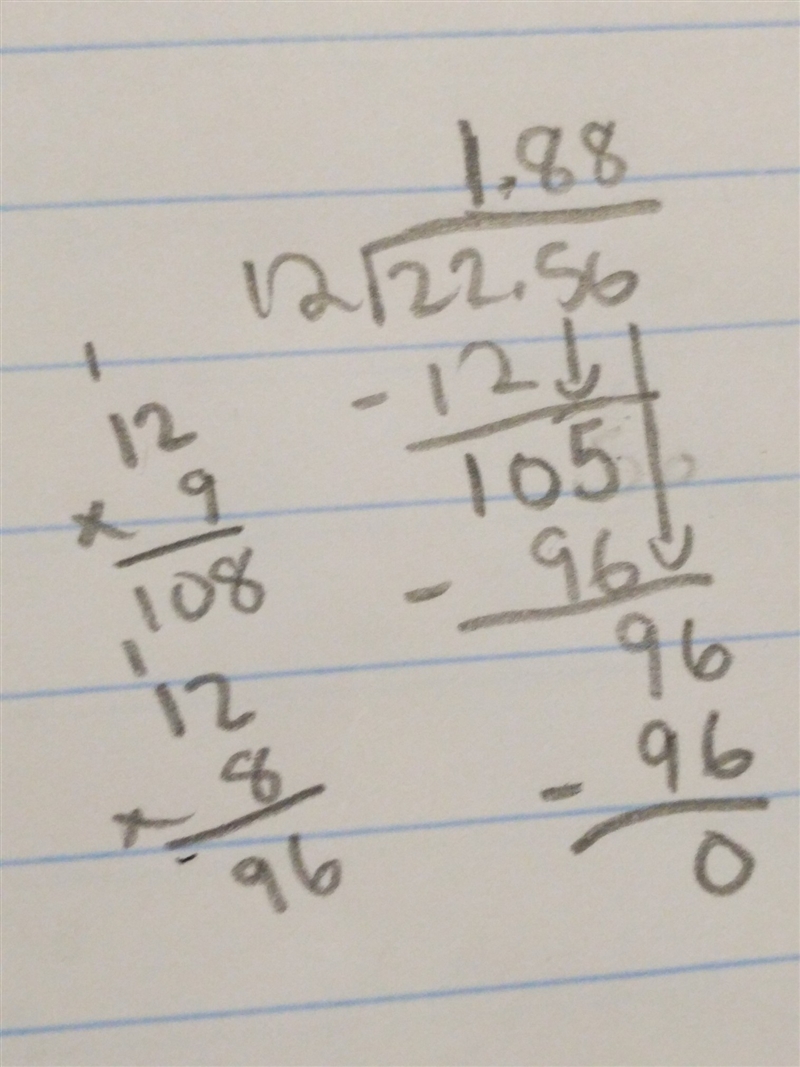 1.88
12√22.56
- 12
105
- 96
96
- 96
0
1
12
× 9
108
1
12
× 8
96